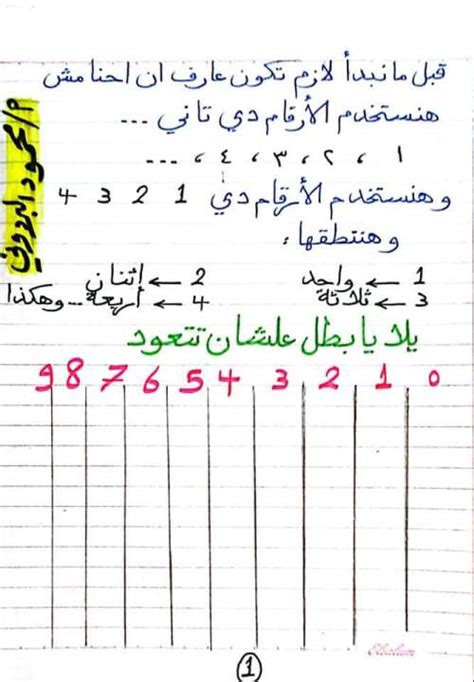 قبل ما نبدأ لازم تكون عارف ان احنا مش
هنستخدم الأرقام دي تاني ...
١ ، ٢ ، ٣ ، ٤ ، ...
وهنستخدم الأرقام دي 1 2 3 4
وهنتطقها :
1 ← واحد 2 ← إثنان
3 ← ثلاثة 4 ← أربعة ... وهكذا
يلا يا بطل علشان تتعود
0 1 2 3 4 5 6 7 8 9
م/محمود
1